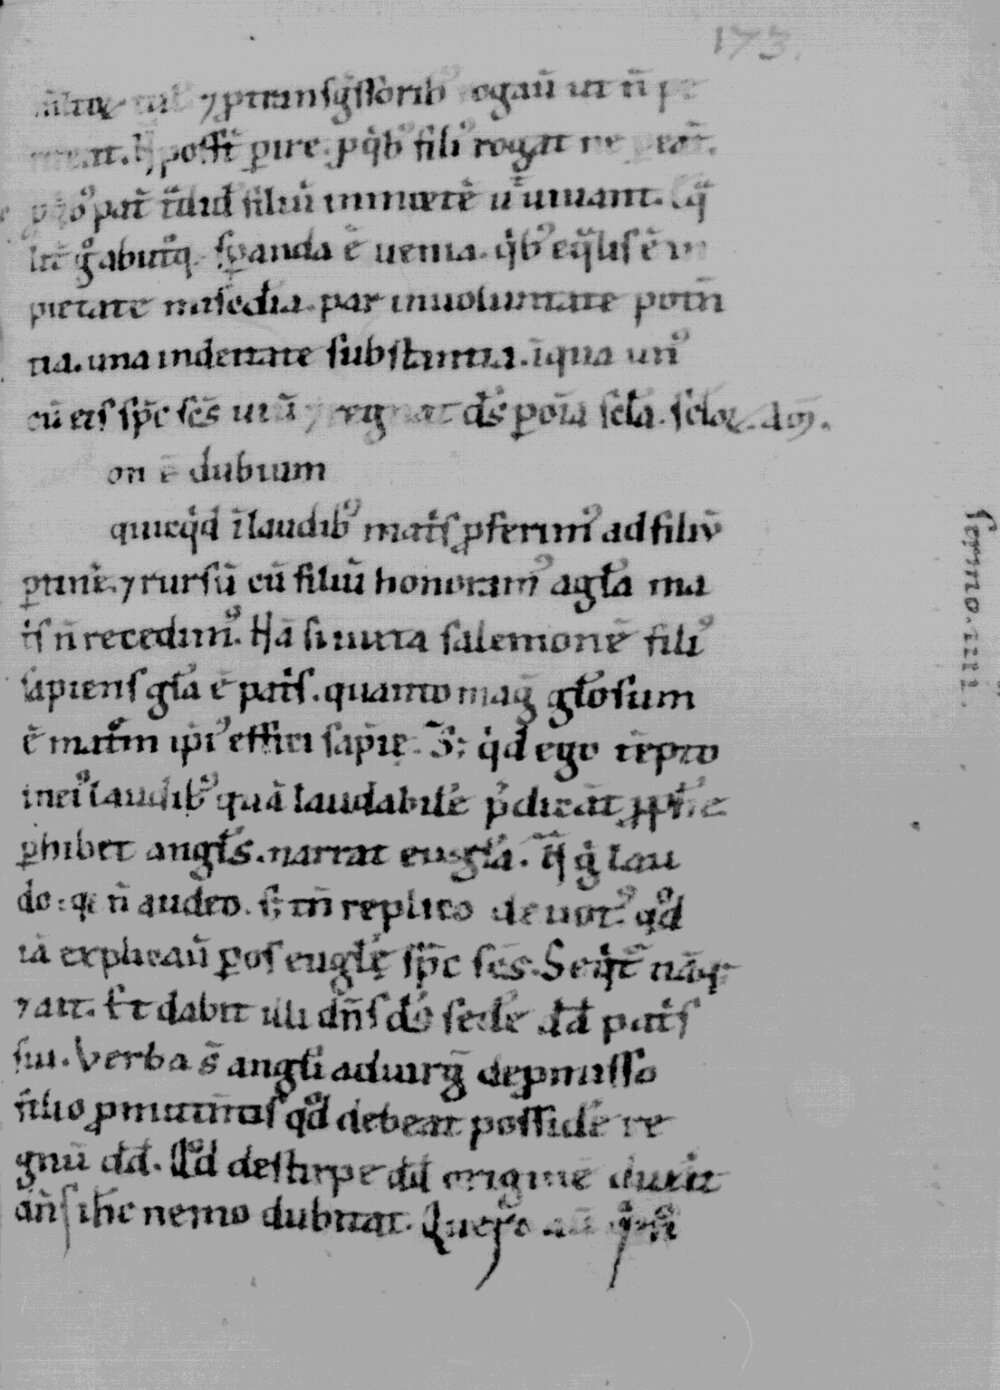 173.
⁊ p̄transgͥssorib᾽ rogaū ut n̄ pe
rirent. H̄ possēt ꝑire. p qͥb᾽ fili᾽ rogat ne ꝑeāt.
p qͥb᾽ pat̄ t̄did̄ filiū in mortē ut uiuant.
sꝑanda ē uenia. qͥb᾽ eq̄lis ē in
pietate misc̄dia. par in uoluntate potn̄
tia. una in deitate substantia. ī qua un᾽
cū eis sp̄c sc̄s uiuit ⁊ regnat d̄s ꝑ om̄ia sc̄la. sc̄loꝝ. am̄.
on ē dubium
quicqͥd ī laudib᾽ mat̄s ꝓferim᾽ ad filiū
ꝑtinē. ⁊ rursū cū filiū honoram᾽ a gl̄a ma
t̄s n̄ recedim᾽. Nā si iuxta salemonē fili᾽
sapiens gl̄a ē pat̄s. quanto mag̅ gl̄osum
ē mat̄m ip̄i᾽ effici sapīe. S; qͥd ego tēpto
in ei᾽ laudib᾽ quā laudabilē p̄dicāt ꝓph̄e
ꝑhibet angl̄s. narrat eug̅l̄a. N̄ gͦ lau
do: qͥ n̄ audeo. s; tn̄ replico deuot᾽ qͦd
iā explicaū ꝑ os eug̅l̄ę sp̄c sc̄s. Seqͥt̄ nāq
⁊ ait. Et dabit illi dn̄s d̄s sedē d̄d pat̄s
sui. Verba s̄ angl̄i ad uirg̅ de ꝓmisso
filio ꝓmittn̄tis qͦd debeat possidē re
gnū d̄d. Qͦd de stirpe d̄d originē duxit
dn̄s ih̄c nemo dubitat. Quero aū
Sermo. iiii.